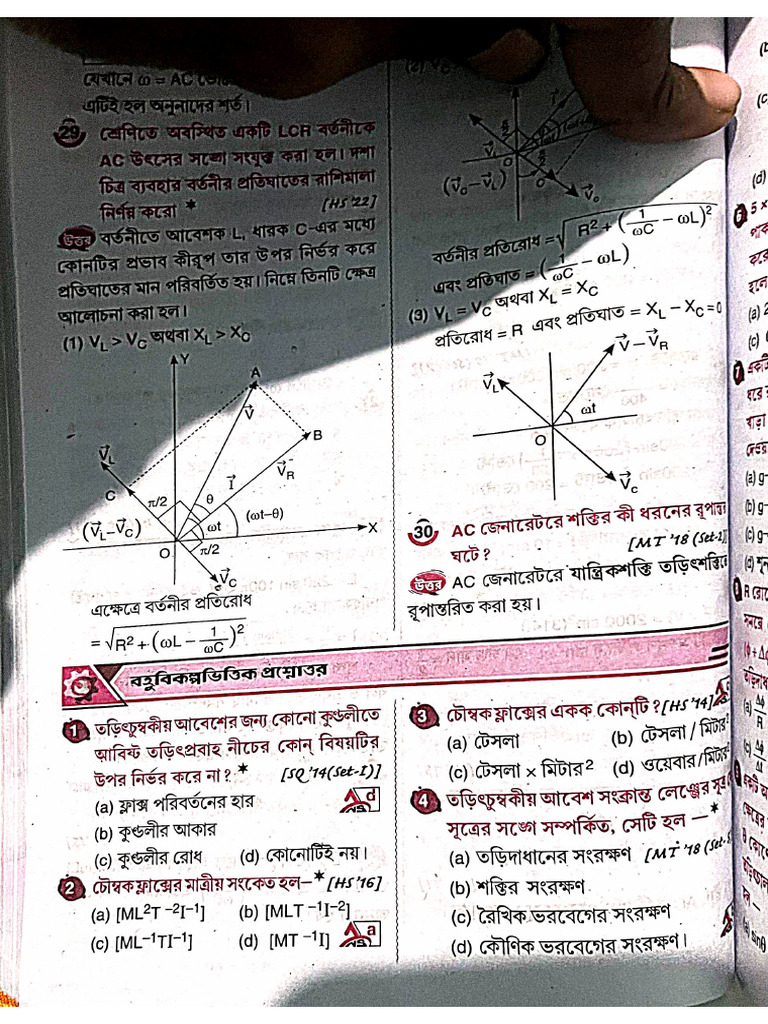 যেখানে ω = AC
এটিই হল অনুনাদের শর্ত।
29 শ্রেণিতে অবস্থিত একটি LCR বর্তনীকে
AC উৎসের সঙ্গে সংযুক্ত করা হল। দশা
চিত্র ব্যবহার বর্তনীর প্রতিঘাতের রাশিমালা
নির্ণয় করো * [HS '22]
উত্তর বর্তনীতে আবেশক L, ধারক C-এর মধ্যে
কোনটির প্রভাব কীরূপ তার উপর নির্ভর করে
প্রতিঘাতের মান পরিবর্তিত হয়। নিম্নে তিনটি ক্ষেত্র
আলোচনা করা হল।
(1) V_L > V_C অথবা X_L > X_C
Y
A
V⃗
B
V⃗_L
V⃗_R
C
I⃗
π/2
θ
(V⃗_L–V⃗_C)
ωt
(ωt–θ)
X
O
π/2
V⃗_C
এক্ষেত্রে বর্তনীর প্রতিরোধ
= √(R² + (ωL – 1/ωC)²)
O
(V⃗_o–V⃗_L)
বর্তনীর প্রতিরোধ = √(R² + (1/ωC – ωL)²)
এবং প্রতিঘাত = (1/ωC – ωL)
(3) V_L = V_C অথবা X_L = X_C
প্রতিরোধ = R এবং প্রতিঘাত = X_L – X_C = 0
V⃗–V⃗_R
V⃗_L
ωt
O
V⃗_C
30 AC জেনারেটরে শক্তির কী ধরনের রূপান্তর
ঘটে? [MT '18 (Set-1)]
উত্তর AC জেনারেটরে যান্ত্রিকশক্তি তড়িৎশক্তিতে
রূপান্তরিত করা হয়।
বহুবিকল্পভিত্তিক প্রশ্নোত্তর
1 তড়িৎচুম্বকীয় আবেশের জন্য কোনো কুণ্ডলীতে
আবিষ্ট তড়িৎপ্রবাহ নীচের কোন্ বিষয়টির
উপর নির্ভর করে না? * [SQ '14(Set-I)]
(a) ফ্লাক্স পরিবর্তনের হার
Ans d
(b) কুণ্ডলীর আকার
(c) কুণ্ডলীর রোধ (d) কোনোটিই নয়।
2 চৌম্বক ফ্লাক্সের মাত্রীয় সংকেত হল—* [HS '16]
(a) [ML²T⁻²I⁻¹] (b) [MLT⁻¹I⁻²]
(c) [ML⁻¹TI⁻¹] (d) [MT⁻¹I] Ans a
3 চৌম্বক ফ্লাক্সের একক কোন্‌টি? [HS '14]
(a) টেসলা (b) টেসলা / মিটার²
(c) টেসলা × মিটার² (d) ওয়েবার/মিটার²
4 তড়িৎচুম্বকীয় আবেশ সংক্রান্ত লেঞ্জের সূত্র
সূত্রের সঙ্গে সম্পর্কিত, সেটি হল —*
(a) তড়িদাধানের সংরক্ষণ [MT '18 (Set-
(b) শক্তির সংরক্ষণ
(c) রৈখিক ভরবেগের সংরক্ষণ
(d) কৌণিক ভরবেগের সংরক্ষণ।